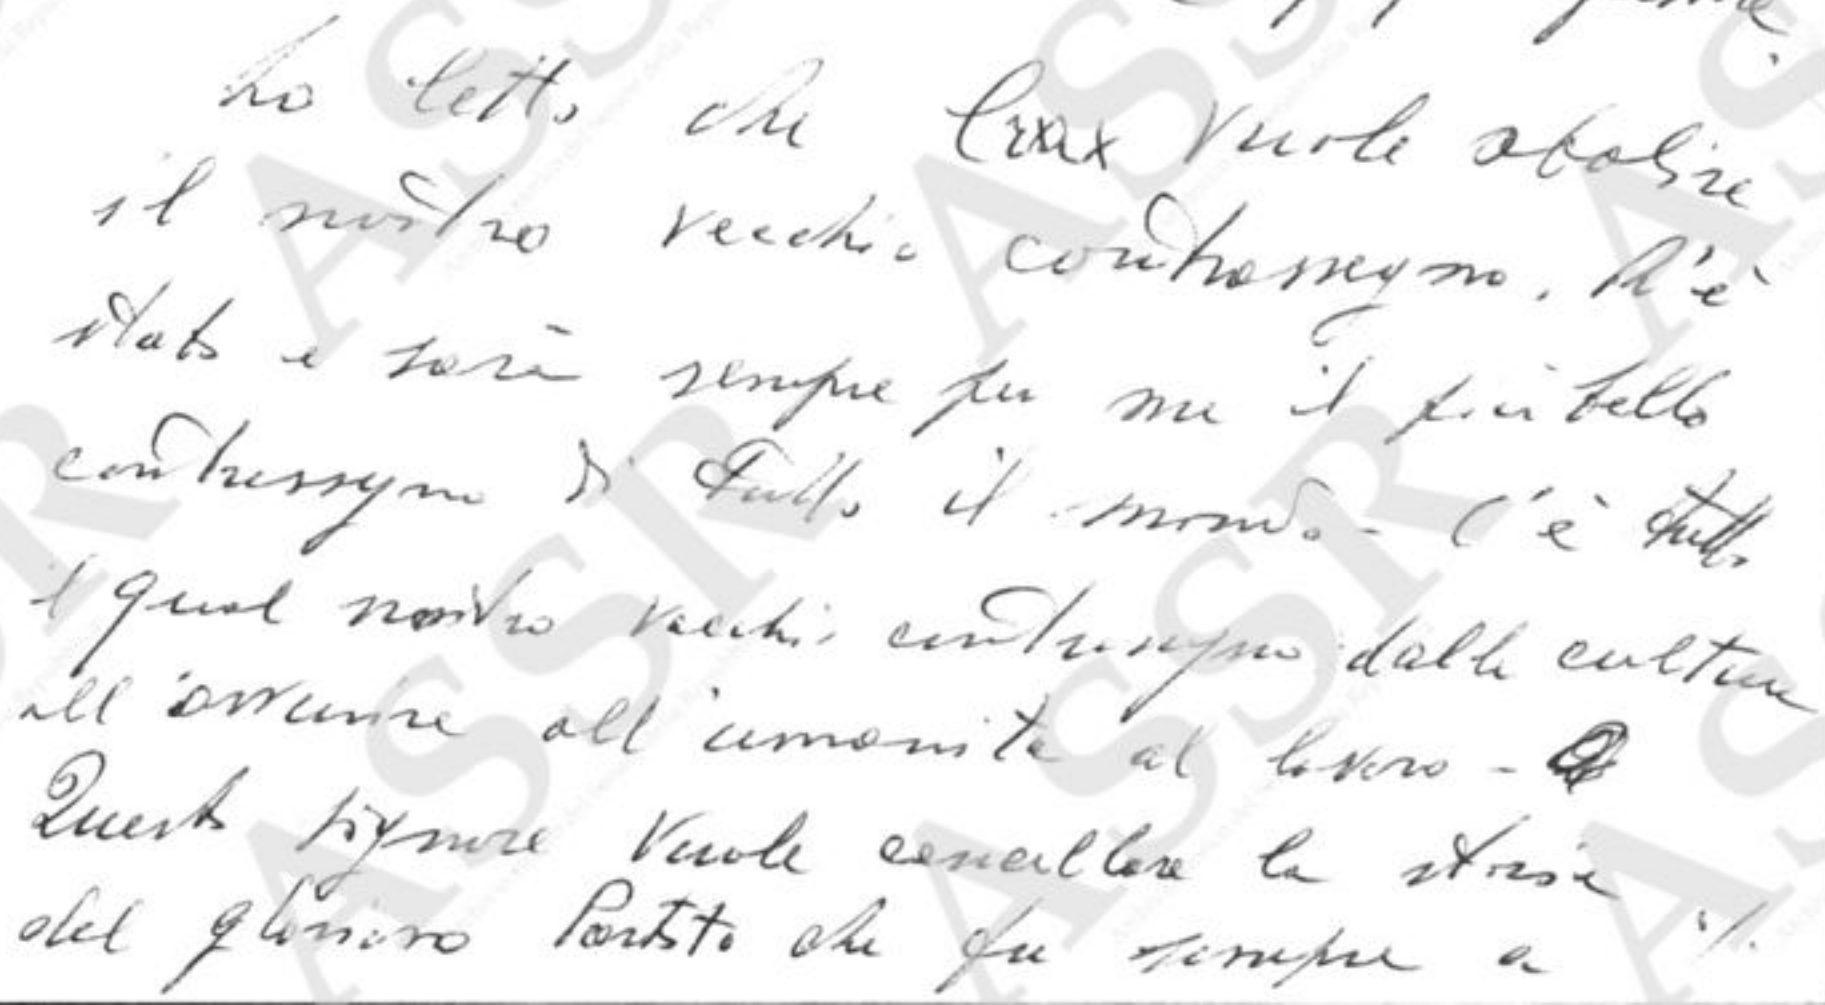 ho letto che Crax vuole abolire
il nostro vecchio contrassegno. N'è
stato e sarà sempre per me il più bello
contrassegno di tutto il mondo - C'è tutto
quel nostro vecchio contrassegno dalla cultura
all'avvenire all'umanità al lavoro -
Questo signore vuole cancellare la storia
del glorioso Partito che fu sempre a
ASSR